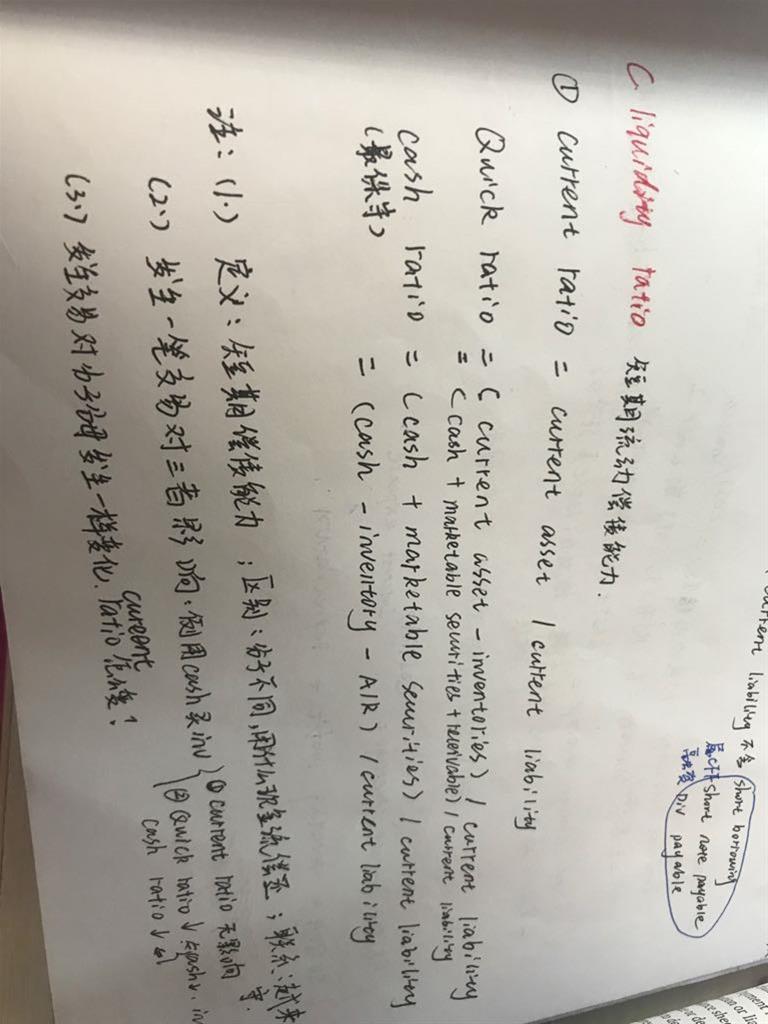 current liability 不含
short borrowing
short note payable
Div payable
属CFF
融资
C. liquidity ratio 短期流动偿债能力.
① current ratio = current asset / current liability
Quick ratio = (current asset - inventories) / current liability
= (cash + marketable securities + receivable) / current liability
cash ratio = (cash + marketable securities) / current liability
(最保守) = (cash - inventory - A/R) / current liability
注: (1.) 定义: 短期偿债能力; 区别: 分子不同, 用什么现金流偿还; 联系: 越来
守.
(2.) 发生一笔交易对三者影响. 例用cash买inv
① current ratio 无影响
② Quick ratio ↓ cash↓. in
cash ratio ↓
(3.) 发生交易对分子分母发生一样变化. current
ratio 怎么变?